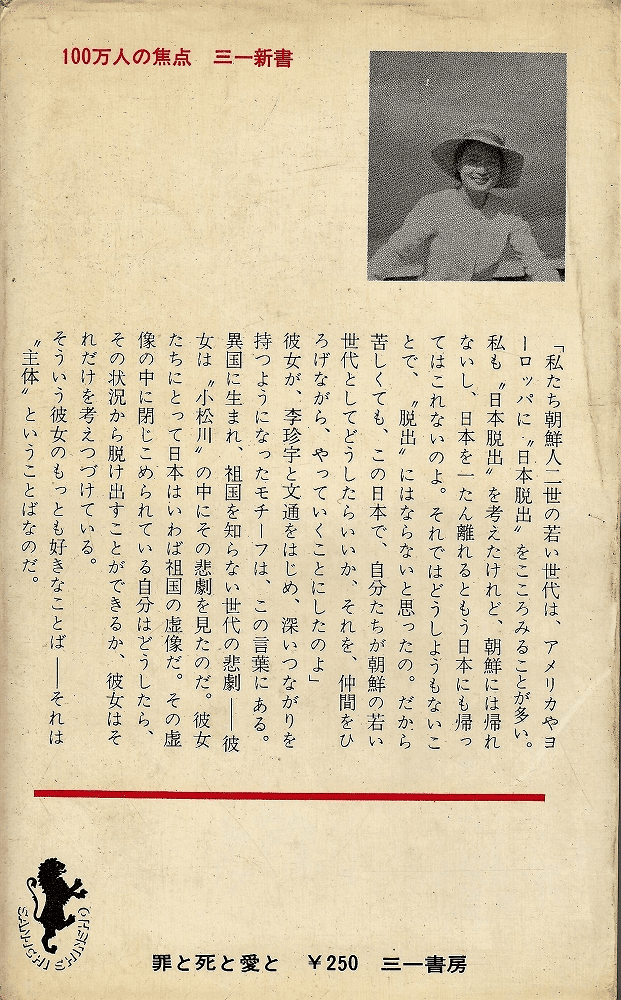 100万人の焦点　三一新書
「私たち朝鮮人二世の若い世代は、アメリカやヨ
ーロッパに〝日本脱出〟をこころみることが多い。
私も〝日本脱出〟を考えたけれど、朝鮮には帰れ
ないし、日本を一たん離れるともう日本にも帰っ
てはこれないのよ。それではどうしようもないこ
とで、〝脱出〟にはならないと思ったの。だから
苦しくても、この日本で、自分たちが朝鮮の若い
世代としてどうしたらいいか、それを、仲間をひ
ろげながら、やっていくことにしたのよ」
彼女が、李珍宇と文通をはじめ、深いつながりを
持つようになったモチーフは、この言葉にある。
異国に生まれ、祖国を知らない世代の悲劇――彼
女は〝小松川〟の中にその悲劇を見たのだ。彼女
たちにとって日本はいわば祖国の虚像だ。その虚
像の中に閉じこめられている自分はどうしたら、
その状況から脱け出すことができるか、彼女はそ
れだけを考えつづけている。
そういう彼女のもっとも好きなことば――それは
〝主体〟ということばなのだ。
SAN-ICHI SHINSHO
罪と死と愛と　￥250　三一書房